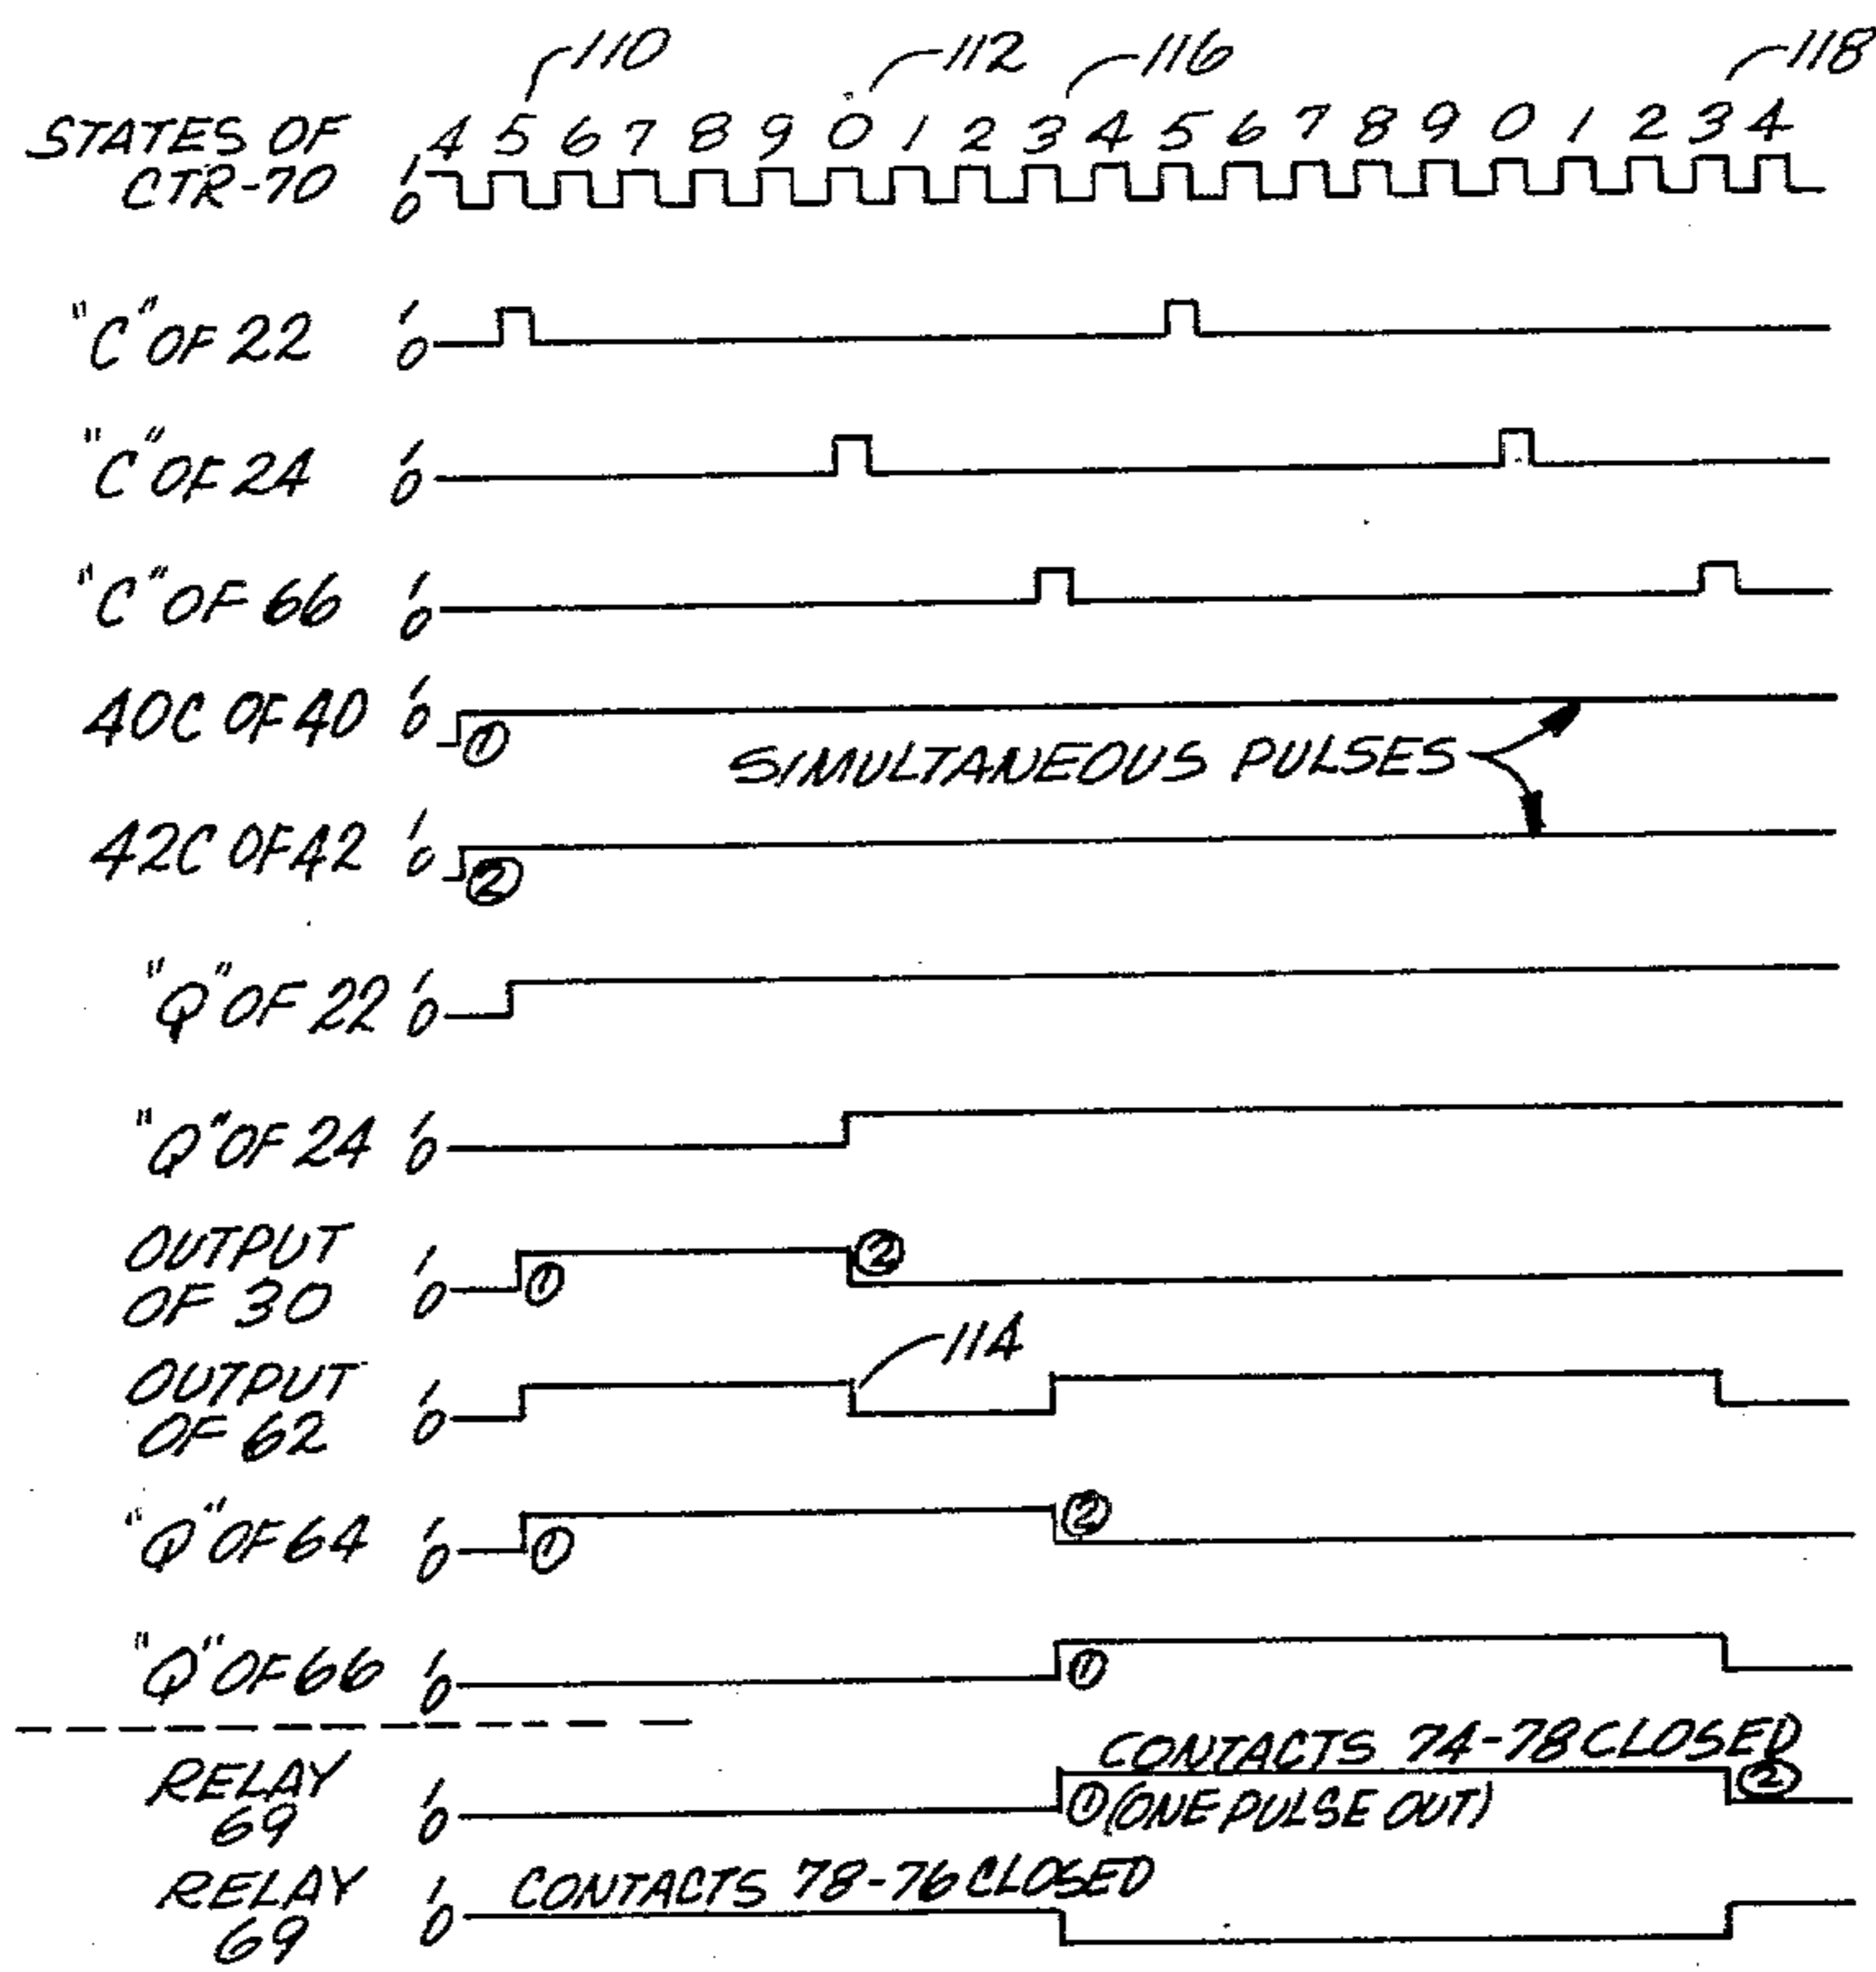 110 112 116 118
STATES OF 4 5 6 7 8 9 0 1 2 3 4 5 6 7 8 9 0 1 2 3 4
CTR-70 1 0
"C" OF 22 1 0
"C" OF 24 1 0
"C" OF 66 1 0
40C OF 40 1 0
①
SIMULTANEOUS PULSES
42C OF 42 1 0
②
"Q" OF 22 1 0
"Q" OF 24 1 0
OUTPUT
OF 30 1 0
① ②
114
OUTPUT
OF 62 1 0
"Q" OF 64 1 0
① ②
"Q" OF 66 1 0
①
CONTACTS 74-78 CLOSED
RELAY
69 1 0
① (ONE PULSE OUT) ②
RELAY
69 1 0
CONTACTS 78-76 CLOSED